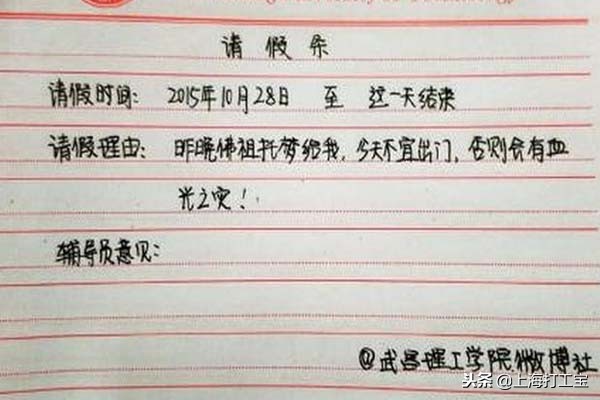 请假条
请假时间: 2015年10月28日 至 这一天结束
请假理由: 昨晚佛祖托梦给我, 今天不宜出门, 否则会有血
光之灾!
辅导员意见:
@武昌理工学院微博社
头条 @上海打工宝